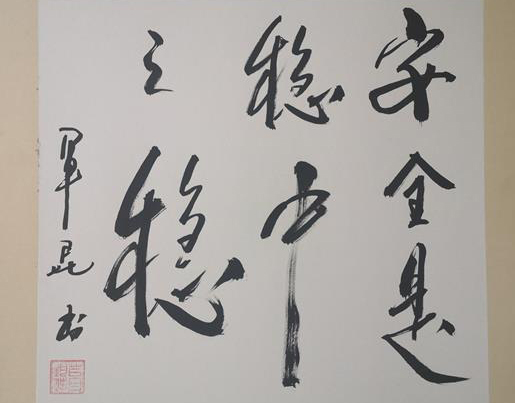 安全是
稳中
之稳
軍昆书